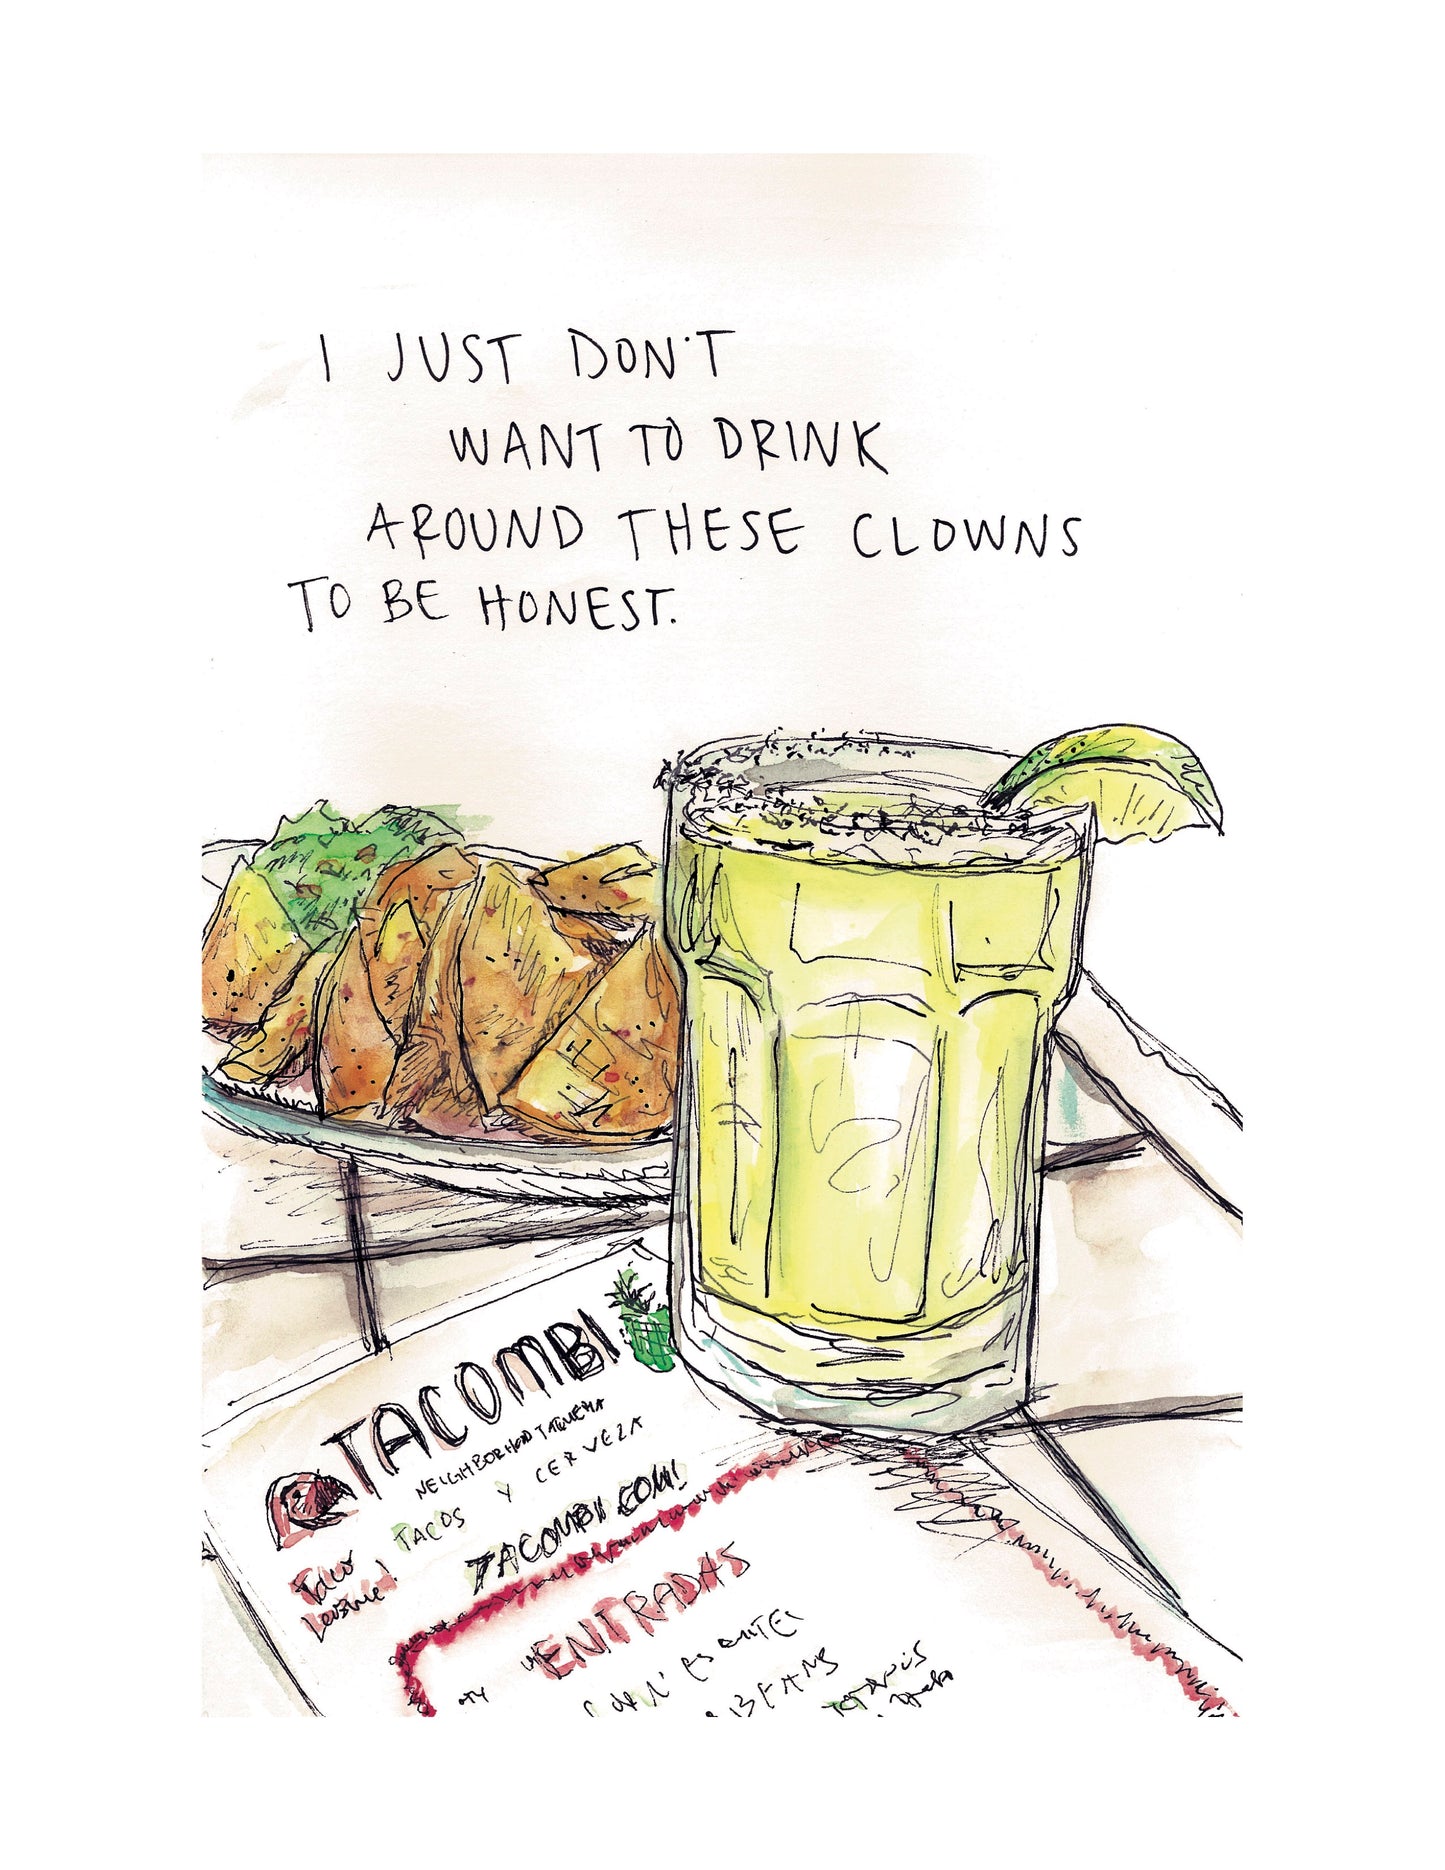 I JUST DON'T
WANT TO DRINK
AROUND THESE CLOWNS
TO BE HONEST.
TACOMBI
NEIGHBORHOOD TAQUERIA
TACOS Y CERVEZA
TACOMBI.COM!
ENTRADAS
QTY